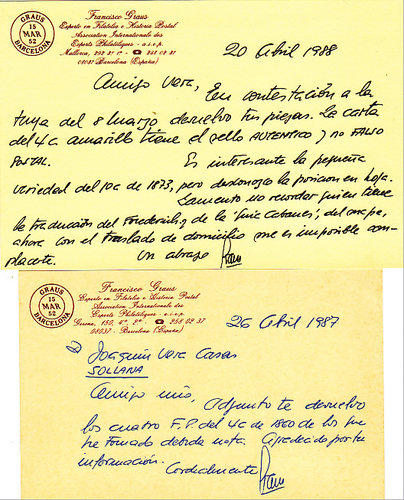 GRAUS
15
MAR
52
BARCELONA
Francisco Graus
Experto en Filatelia e Historia Postal
Association Internationale des
Experts Philatéliques - a.i.e.p.
Mallorca, 292 2º 1ª - ☎ 258 02 37
08037 Barcelona (España)
20 Abril 1988
Amigo Vera,
En contestación a la
tuya del 8 Marzo devuelvo tus piezas. La carta
del 4c amarillo tiene el sello AUTENTICO y no FALSO
POSTAL.
Es interesante la pequeña
variedad del 10c de 1873, pero desconozco la posicion en hoja.
Lamento no recordar quien tiene
la traducción del
de la
ahora con el traslado de domicilio me es imposible com-
placerte.
Un abrazo
GRAUS
15
MAR
52
BARCELONA
Francisco Graus
Experto en Filatelia e Historia Postal
Association Internationale des
Experts Philatéliques - a.i.e.p.
Gerona, 150, 4º, 2ª ☎ 258 02 37
08037 - Barcelona (España)
26 Abril 1987
Joaquin Vera Casas
SOLLANA
Amigo mio,
Adjunto te devuelvo
los cuatro F.P. del 4c de 1860 de los que
he tomado debida nota. Agradecido por tu
información.
Cordialmente